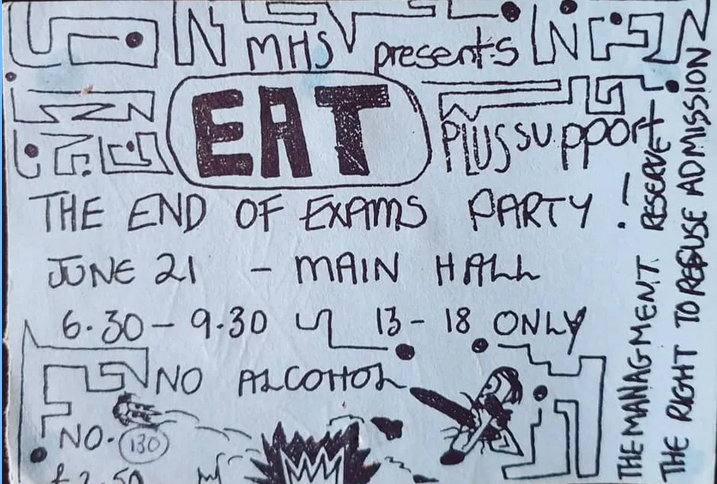 MHS presents
EAT
PLUS support
THE END OF EXAMS PARTY!
JUNE 21 - MAIN HALL
6.30 - 9.30 13 - 18 ONLY
NO ALCOHOL
NO. 130
£2.50
THE MANAGMENT. RESERVE
THE RIGHT TO REFUSE ADMISSION